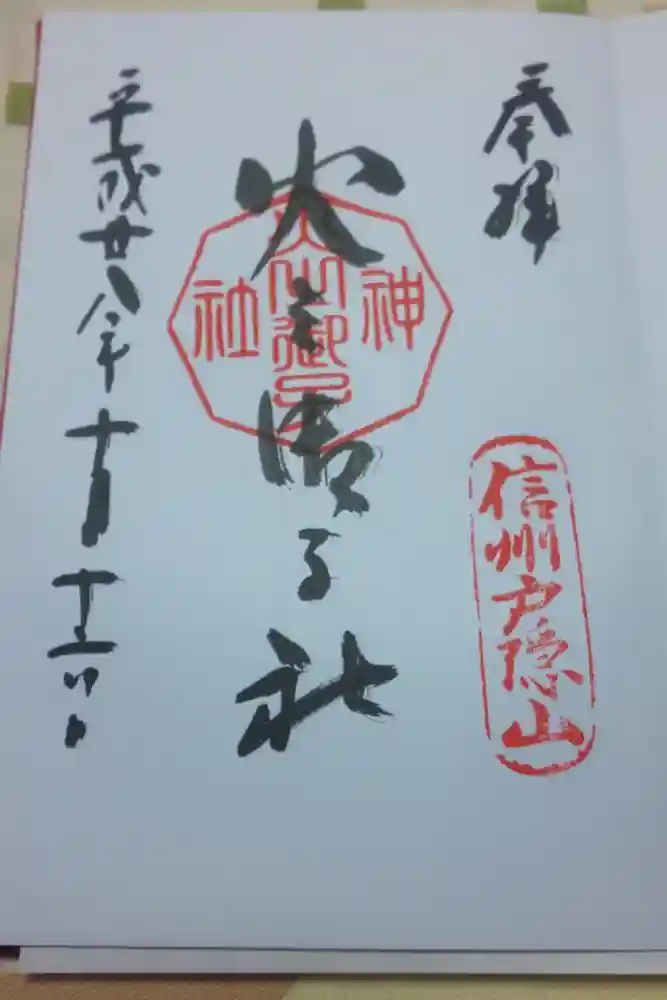 奉拝
信州戸隠山
火之御子社
神
火之御子
社
平成廿八年十月十日